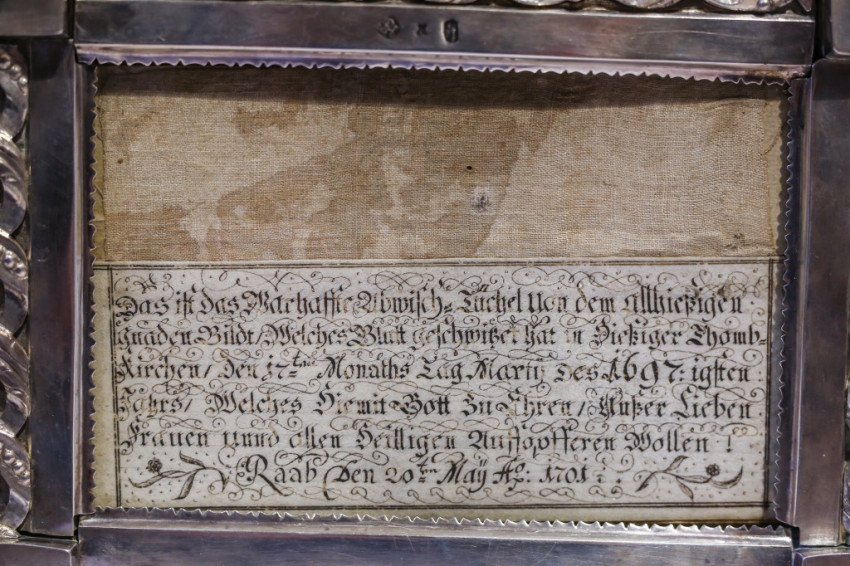 Das ist das Warhaffte Abwisch= Tüchel Von dem allhießigen
gnaden Bildt / Welches Blutt geschwitzet hat in Hießiger Thomb=
Kirchen / den 17ten Monaths Tag Martij des 1697: igsten
Jahrs / Welches Hiemit Gott Zu Ehren / Unßer Lieben
Frauen unnd allen Heilligen Auffopfferen Wollen !
Raab den 20ten Maÿ Ao. 1701 :